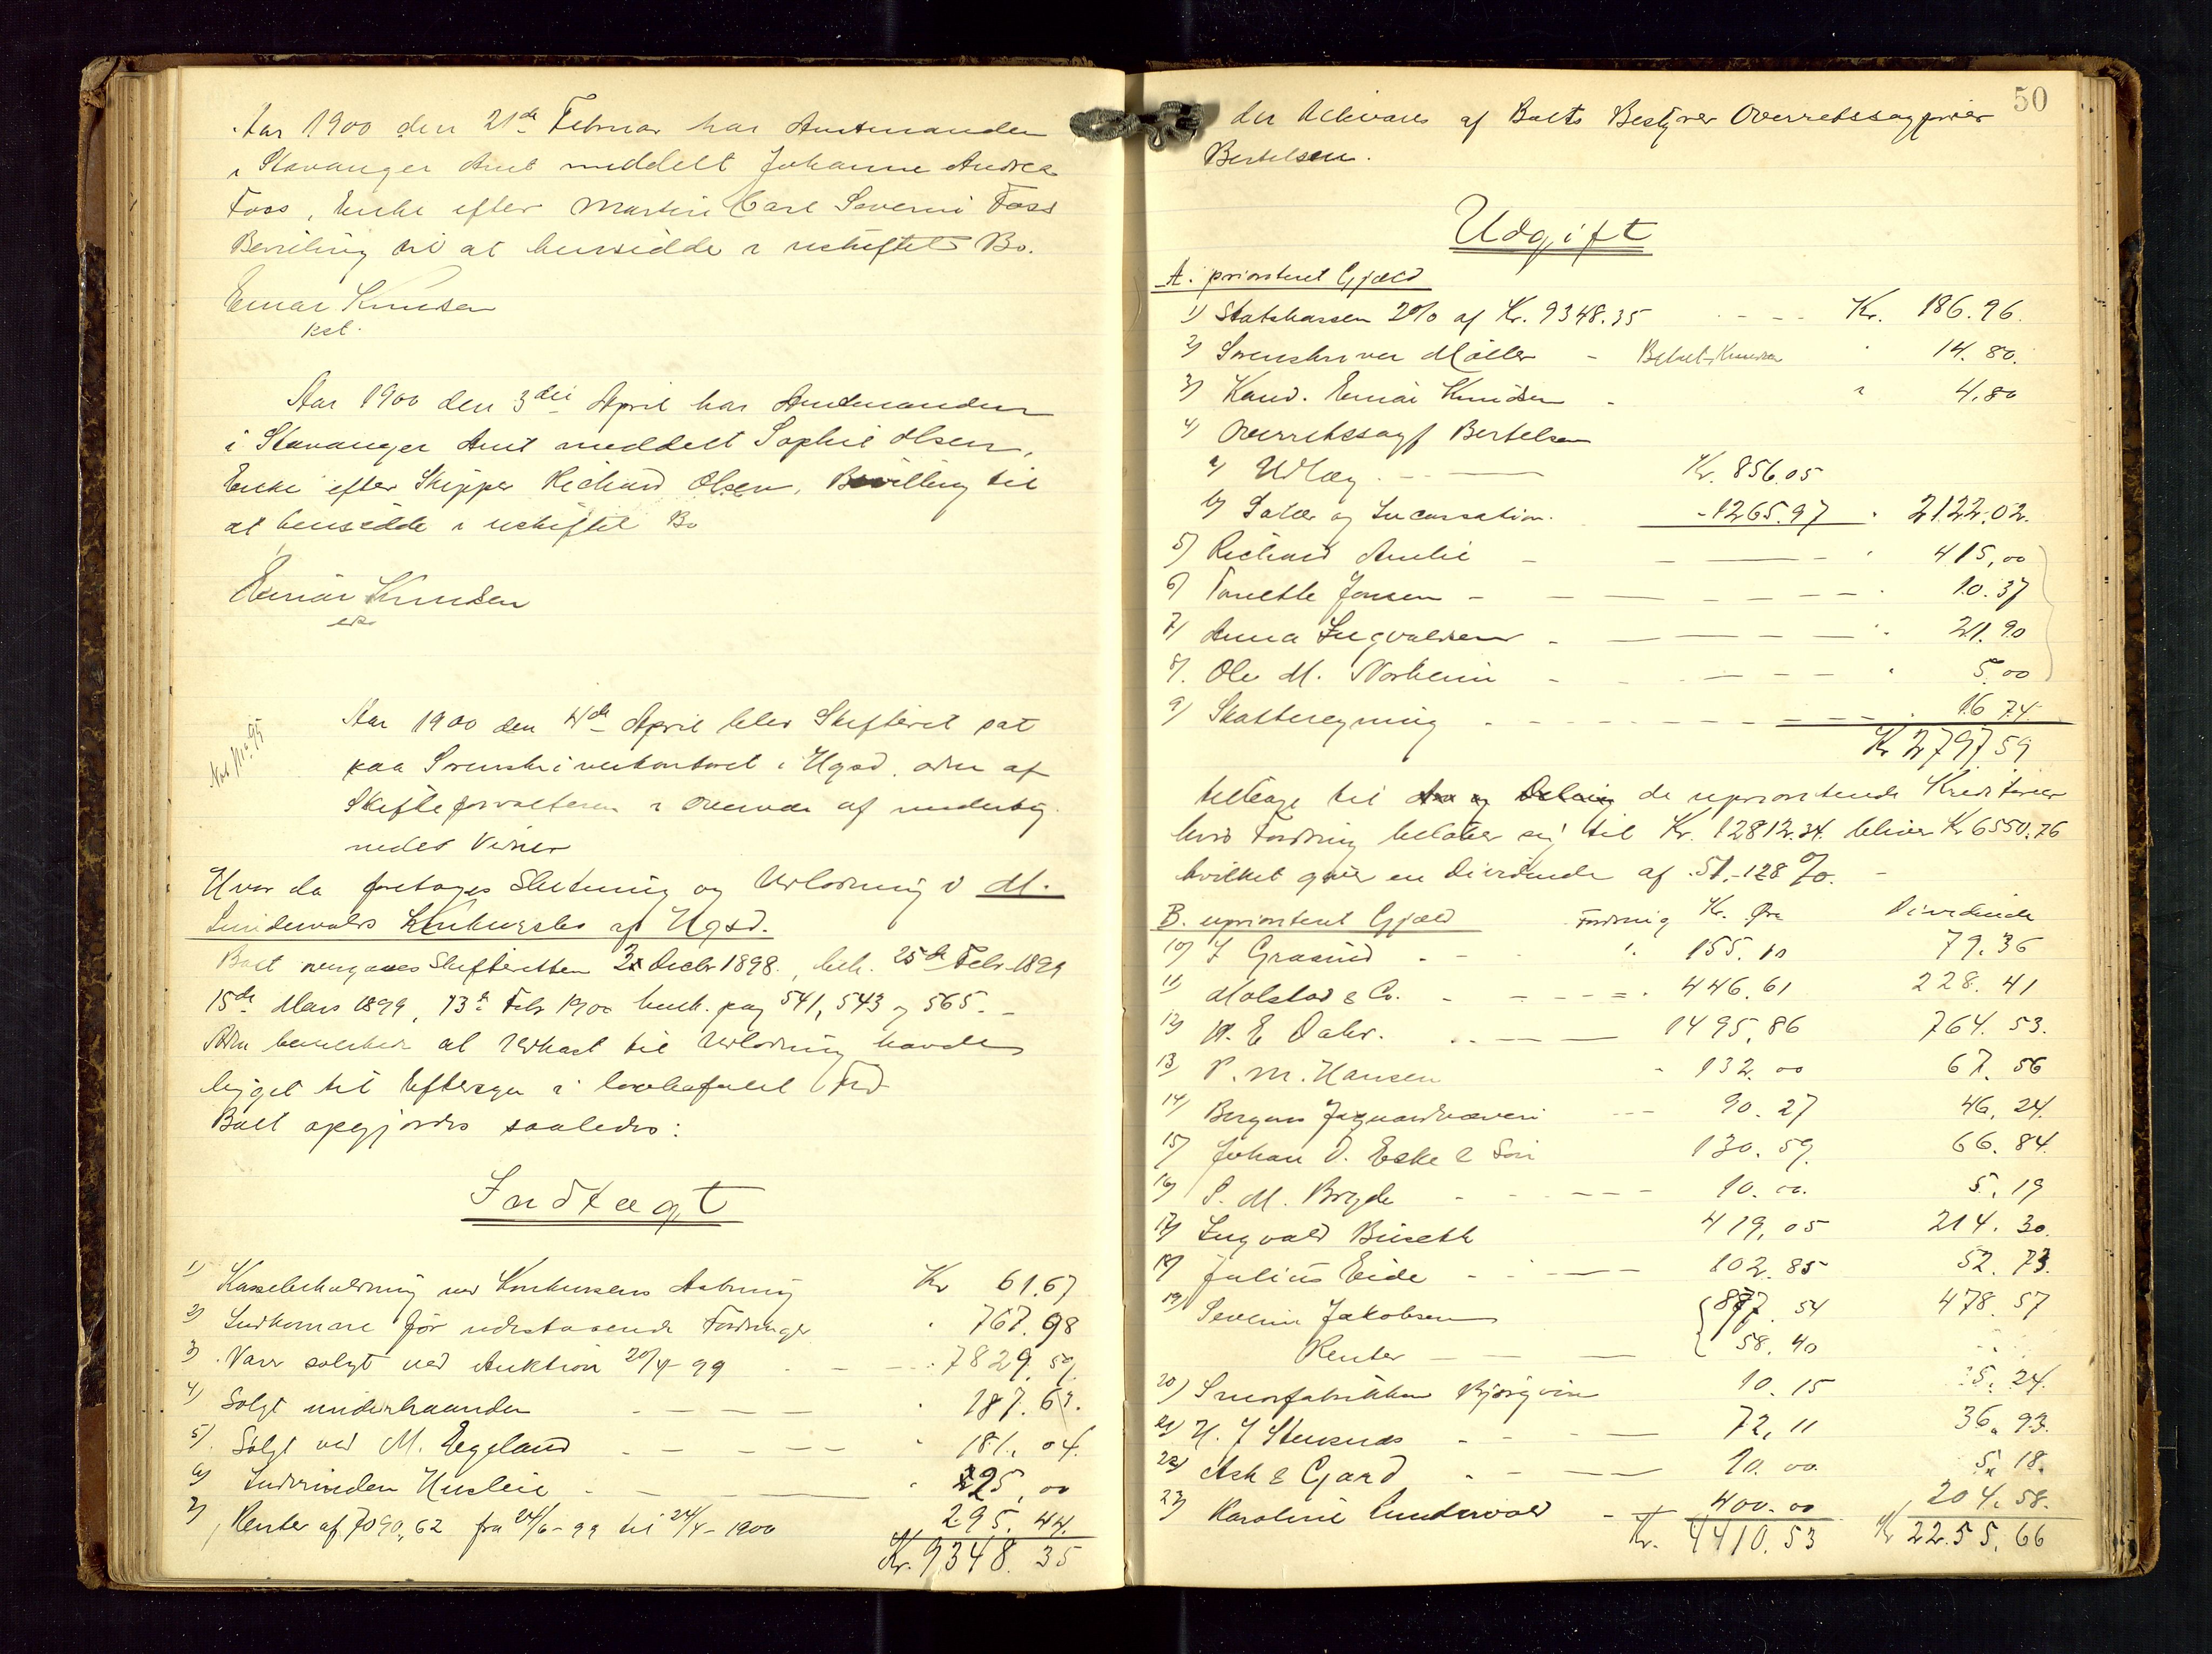 Aar 1900 den 21de Februar har Amtmanden
i Stavanger Amt meddelt Johanne Andrea
Foss, Enke efter Martin Carl Severin Foss
Bevilling til at hensidde i uskiftet Bo.
Einar Knudsen
kst.
Aar 1900 den 3die April har Amtmanden
i Stavanger Amt meddelt Sophie Olsen,
Enke efter Skipper Richard Olsen, Bevilling til
at hensidde i uskiftet Bo
Einar Knudsen
Aar 1900 den 4de April blev Skifteret sat
paa Sorenskriverkontoret i Hgsd. adm af
Skifteforvalteren i Overvær af underteg
nedes Vidner
Hvor da foretoges Slutning og Udlodning i M.
Lundevalds Konkursbo af Hgsd.
Boet Skifteretten 2 Decbr 1898., beh. 25de Febr. 1899
15de Mars 1899, 13de Febr 1900 pag 541, 543 og 565. –
Adm bemerket at Udkast til Udlodning havde
ligget til Eftersyn i lovbefalet Tid
Boet opgjordes saaledes:
Indtægt
1) Kassebeholdning ved Konkursens Aabning Kr 61.67
2) Indkomne for udestaaende Fordringer " 767.98
3) Varer solgt ved Auktion 20/4 99 - - - " 7829.59
4) Solgt underhaanden - - - - " 187.63.
5) Solgt ved M. Egeland - - - - - " 181.04.
6) Indvunden Husleie - - - " 25,00
7) Renter af 7090,62 fra 24/6-99 til 24/4-1900 295.44.
Kr. 9348.35
50
der af Boets Bestyrer Overretssagfører
Bertelsen.
Udgift
A. prioriteret Gjæld
1) Statskassen 2% af Kr. 9348.35 - - - - Kr. 186.96.
2) Sorenskriver Møller - Betalt Knudsen " 14.80.
3) Kand. Einar Knudsen - " 4.80
4) Overretssagf Bertelsen
a) Udlæg - - - Kr. 856.05
b) Salær og Incassation. - 1265.97 " 2122.02.
5) Richard Amlie - - - " 415,00
6) Tonette Jonsen - - - - - " 10.37
7) Anna Ingvaldsen - - - - " 21.90
8) Ole M. Norheim - - - - " 5.00
9) Skatteregning - - - - - " 16 74
Kr 2797 59
tilbage til de uprioriterede Kreditorer
hvis Fordring beløber sig til Kr. 12812.34. bliver Kr 6550.76
hvilket giver en Dividende af 51.-128 %. –
B. uprioriteret Gjæld Fordring Kr. Øre Dividende
10) " 155.10 79.36
11) Molstad & Co. - - - - = " 446.61 228.41
12) E Dahr. - - - 1495,86 764.53.
13) P. M. Hansen - 132.00 67.56
14) Bergens Jaquardvæveri - - - 90.27 46.24.
15) Johan D. Eske & Søn 130.59. 66.84.
16) S. M. Bryde - - - - 10.00. 5.19
17) Ingvald Buseth 419,05 214.30.
18) Julius Eide - - - 102.85 52.73.
19) Severin Jakobsen { 877.54 478.57
Renter - - - { 58.40
20) Bjørgvin 10.15 5.24.
21) H. J Stensnæs - - - 72,11 36.93.
22) Ask & Gjard - - - 10.00 5.18.
23) Karoline Lundevald - 400.00 204.58.
Kr. 4410.53 Kr 2255.66